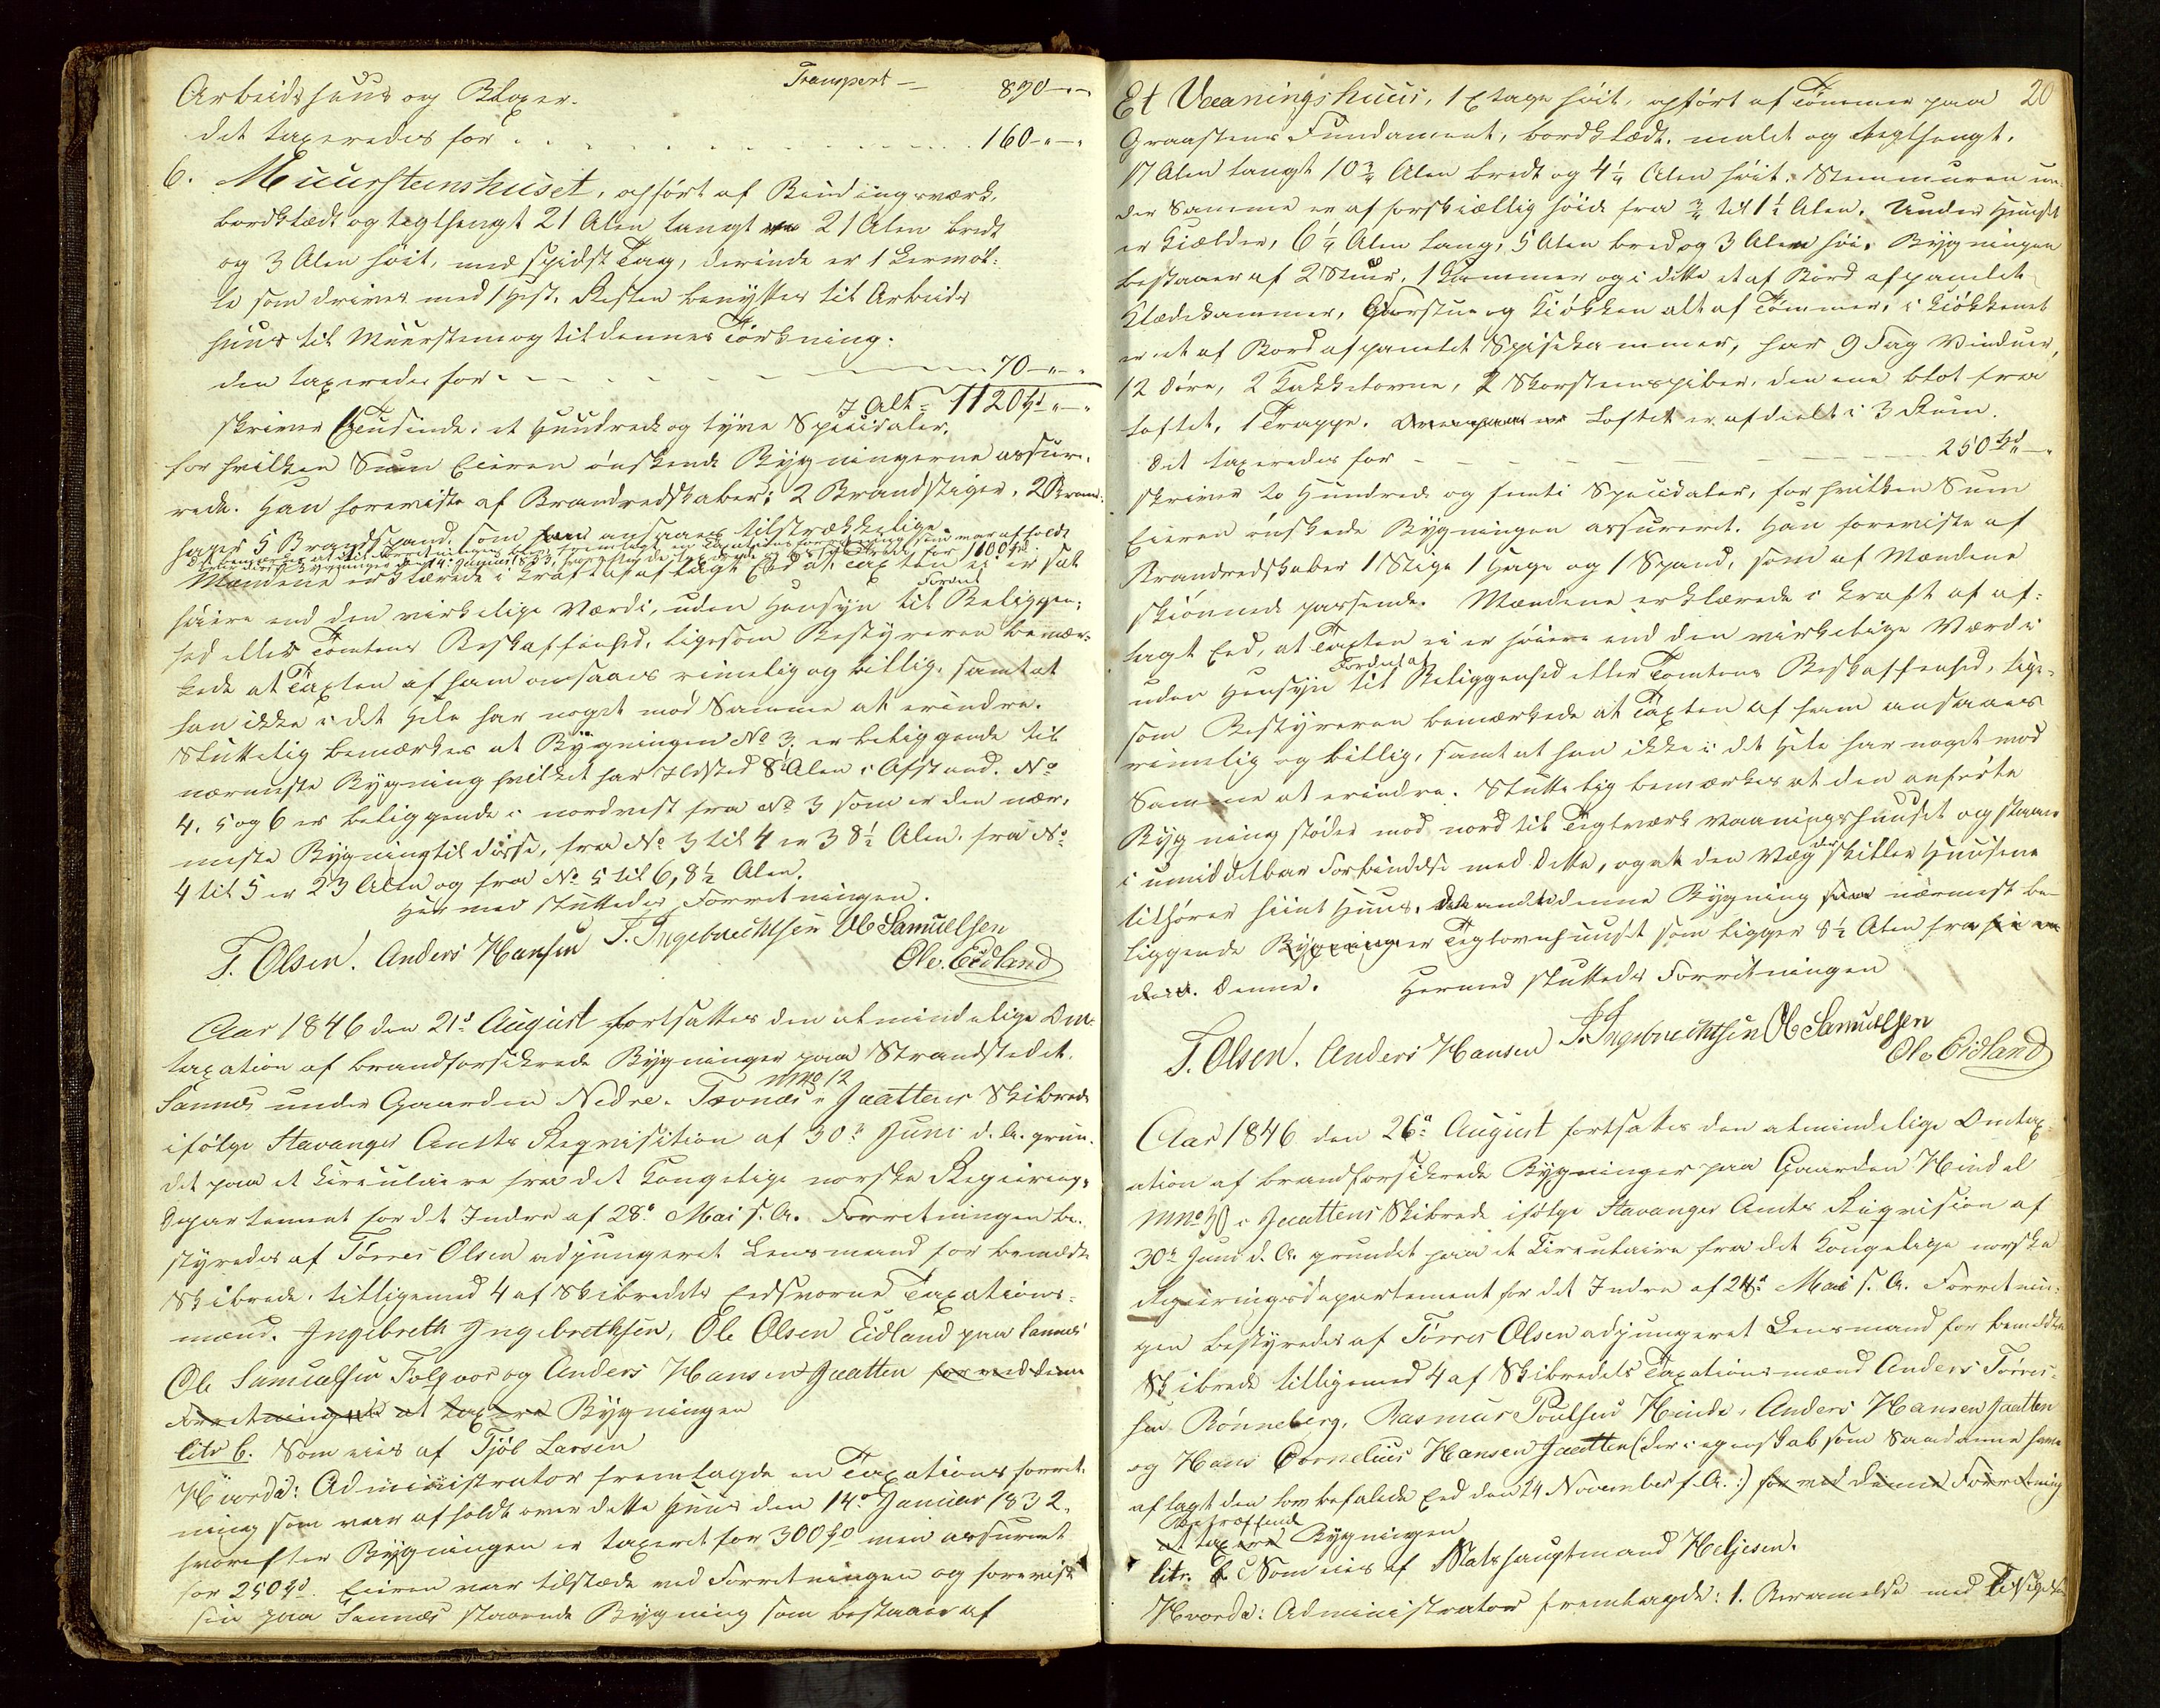 Transport — 890 - " -
Arbeidshuus og Boxer.
det taxeredes for . . . . . . 160 - " - "
6. Muursteenshuset, opført af Bindingsværk,
bordklædt og tegthængt 21 Alen langt 21 Alen bredt
og 3 Alen høit, med spidst Tag, derinde er 1 Leermøl-
le som drives med 1 Hest. Resten benyttes til Arbeids
huus til Muursteen og til dennes Tørkning.
den taxeredes for . — — — 70 - " - "
I Alt = 1120 Spd " - "
skriver Eettusinde, et Hundrede og tyve Speciedaler,
for hvilken Sum Eieren ønskede Bygningerne assure-
rede. Han foreviste af Brandredskaber: 2 Brandstiger, 2 Brand-
hager 5 Brandspand, som ansaaes tilstrækkelige.
Mændene erklærede i Kraft af aflagt Eed at Taxten ei er sat
høiere end den virkelige Værdi, uden Hensyn til Fordeel Beliggen-
hed eller Tomtens Beskaffenhed, ligesom Bestyreren bemær-
kede at Taxten af ham ansaaes rimelig og billig, samt at
han ikke i det Hele har noget mod Samme at erindre.
Sluttelig bemærkes at Bygningen No 3. er beliggende til
nærmeste Bygning hvilket har Ildsted 8½ Alen i Afstand. No
4, 5 og 6 er beliggende i nordvest fra No 3 som er den nær-
meste Bygning til disse, fra No 3 til 4 er 38½ Alen. fra No
4 til 5 er 23 Alen og fra No 5 til 6, 8½ Alen.
Hermed sluttedes Forretningen.
T. Olsen. Anders Hansen I. Ingebrechtsen Ole Samuelsen
Ole. Eidland
Aar 1846 den 21de August fortsattes den almindelige Om-
taxation af brandforsikrede Bygninger paa Strandstedet
MNo 12
Sannes under Gaarden Nedre Tronæs i Jaattens Skibrede
ifølge Stavanger Amts Reqvisition af 30te Juni d. A. grun-
det paa et Circulaire fra det Kongelige norske Regierings-
Departement for det Indre af 28de Mai s. A. Forretningen be-
styredes af Tørres Olsen adjungeret Lensmand for bemældte
Skibrede, tilligemed 4 af Skibredets Eedsvorne Taxations-
mænd. Ingebreth Ingebrethsen, Ole Olsen Eidland paa Sannes
Ole Samuelsen Folqvor og Anders Hansen Jaatten for ved denne
Forretningen at taxere Bygningen
litr b. som eies af Tjöl Larsen
Hvorda: Administrator fremlagde en Taxationsforret-
ning som var afholdt over dette Huus den 14de Januar 1832,
hvorefter Bygningen er taxeret for 300 Spd men assureret
for 250 Spd. Eieren var tilstæde ved Forretningen og foreviste
sin paa Sannes staaende Bygning som bestaaer af
20
Et Vaaningshuus, 1 Etage høit, opført af Tømmer paa
Graasteens Fundament, bordklædt, malet og tegthængt.
17 Alen langt 10¾ Alen bredt og 4¼ Alen høit. Steenmuren un-
der Samme er af forskiællig høide fra ¾ til 1½ Alen. Under Huset
er Kiælder, 6¼ Alen lang, 5 Alen bred og 3 Alen høi. Bygningen
bestaaer af 2 Stuer, 1 Kammer og i dette et af Bord afpanelet
Klædekammer, Gangstue og Kiøkken alt af Tømmer, i Kiøkkenet
er et af Bord afpanelet Spisekammer, har 9 Fag Vinduer,
12 Døre, 2 Kakkelovne, 2 Skorsteenspiber, den ene blot fra
Loftet, 1 Trappe. Loftet er afdeelt i 3 Rum.
det taxeredes for — — — — 250 Spd " - "
skriver to Hundrede og femti Speciedaler, for hvilken Sum
Eieren ønskede Bygningen assureret. Han foreviste af
Brandredskaber 1 Stige 1 Hage og 1 Spand, som af Mændene
skiønnede passende. Mændene erklærede i Kraft af af-
lagt Eed, at Taxten ei er høiere end den virkelige Værdi
uden Hensyn til Fordeel af Beliggenhed eller Tomtens Beskaffenhed, lige-
som Bestyreren bemærkede at Taxten af ham ansaaes
rimelig og billig, samt at han ikke i det Hele har noget mod
Samme at erindre. Sluttelig bemærkes at den anførte
Bygning støder mod nord til Tegtværk Vaaningshuuset og staaer
i umiddelbar Forbindelse med dette, og at den Væg der skiller Huusene
tilhører hiint Huus. denne Bygning nærmest be-
liggende Bygning er Teglovnhuuset som ligger 8½ Alen fra
denne. Hermed sluttedes Forretningen
T. Olsen. Anders Hansen I. Ingebrechtsen Ole Samuelsen
Ole Eidland
Aar 1846 den 26de August fortsattes den almindelige Omtax-
ation af brandforsikrede Bygninger paa Gaarden Hindal
MNo 30 i Jaattens Skibrede ifølge Stavanger Amts Reqvision af
30te Juni d. A. grundet paa et Circulaire fra det Kongelige norske
Regieringsdepartement for det Indre af 28de Mai s. A. Forretnin-
gen bestyredes af Tørres Olsen adjungeret Lensmand for bemeldte
Skibrede tilligemed 4 af Skibredets Taxationsmænd Anders Tørres-
sen Rønneberg, Rasmus Poulsen Hinde, Anders Hansen Jaatten
og Hans Cornelius Hansen Jaatten (der i egenskab som Saadanne have
aflagt den lov befalede Eed den 24 November f. A.:) for ved denne Forretning
Betræffende
at taxere Bygningen
litr. b Som eies af Statshauptmand Heljesen.
Hvorda: Administrator fremlagde: 1. Berammelse med Tilsigelse